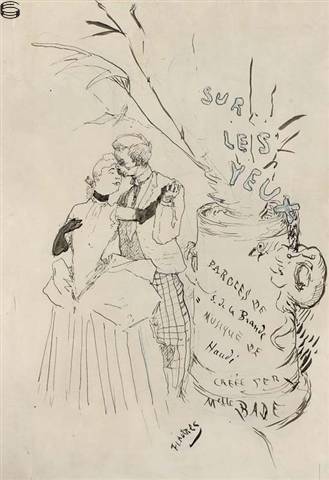 SUR
LES
YEUX
PAROLES DE
S. de la Brande
MUSIQUE DE
Haudi
CREEE PAR
Melle BADE